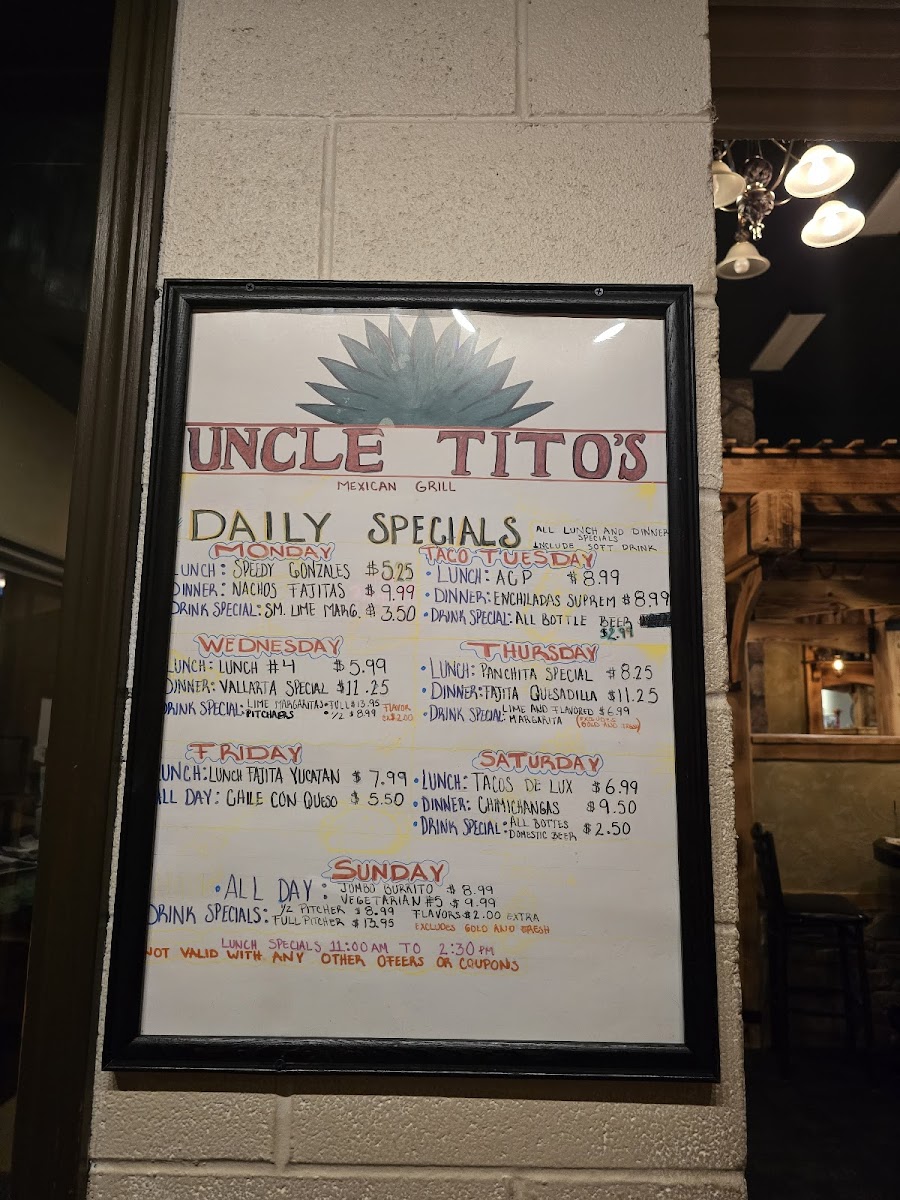 UNCLE TITO'S
MEXICAN GRILL
DAILY SPECIALS
ALL LUNCH AND DINNER
SPECIALS
INCLUDE SOFT DRINK
MONDAY
LUNCH: SPEEDY GONZALES $5.25
DINNER: NACHOS FAJITAS $9.99
DRINK SPECIAL: SM. LIME MARG. $3.50
TACO TUESDAY
• LUNCH: ACP $8.99
• DINNER: ENCHILADAS SUPREM $8.99
• DRINK SPECIAL: ALL BOTTLE BEER
$2.99
WEDNESDAY
LUNCH: LUNCH #4 $5.99
DINNER: VALLARTA SPECIAL $11.25
DRINK SPECIAL: LIME MARGARITAS • FULL $13.95
PITCHAERS • 1/2 $8.99
FLAVOR
$2.00
THURSDAY
• LUNCH: PANCHITA SPECIAL $8.25
• DINNER: FAJITA QUESADILLA $11.25
• DRINK SPECIAL: LIME AND FLAVORED $6.99
MARGARITA (EXCLUDES
GOLD AND FRESH)
FRIDAY
LUNCH: LUNCH FAJITA YUCATAN $7.99
ALL DAY: CHILE CON QUESO $5.50
SATURDAY
• LUNCH: TACOS DE LUX $6.99
• DINNER: CHIMICHANGAS $9.50
• DRINK SPECIAL • ALL BOTTES
DOMESTIC BEER $2.50
SUNDAY
• ALL DAY: JUMBO BURRITO $8.99
VEGETARIAN #5 $9.99
DRINK SPECIALS: 1/2 PITCHER $8.99 FLAVORS $2.00 EXTRA
FULL PITCHER $13.95 EXCLUDES GOLD AND FRESH
LUNCH SPECIALS 11:00 AM TO 2:30 PM
NOT VALID WITH ANY OTHER OFEERS OR COUPONS